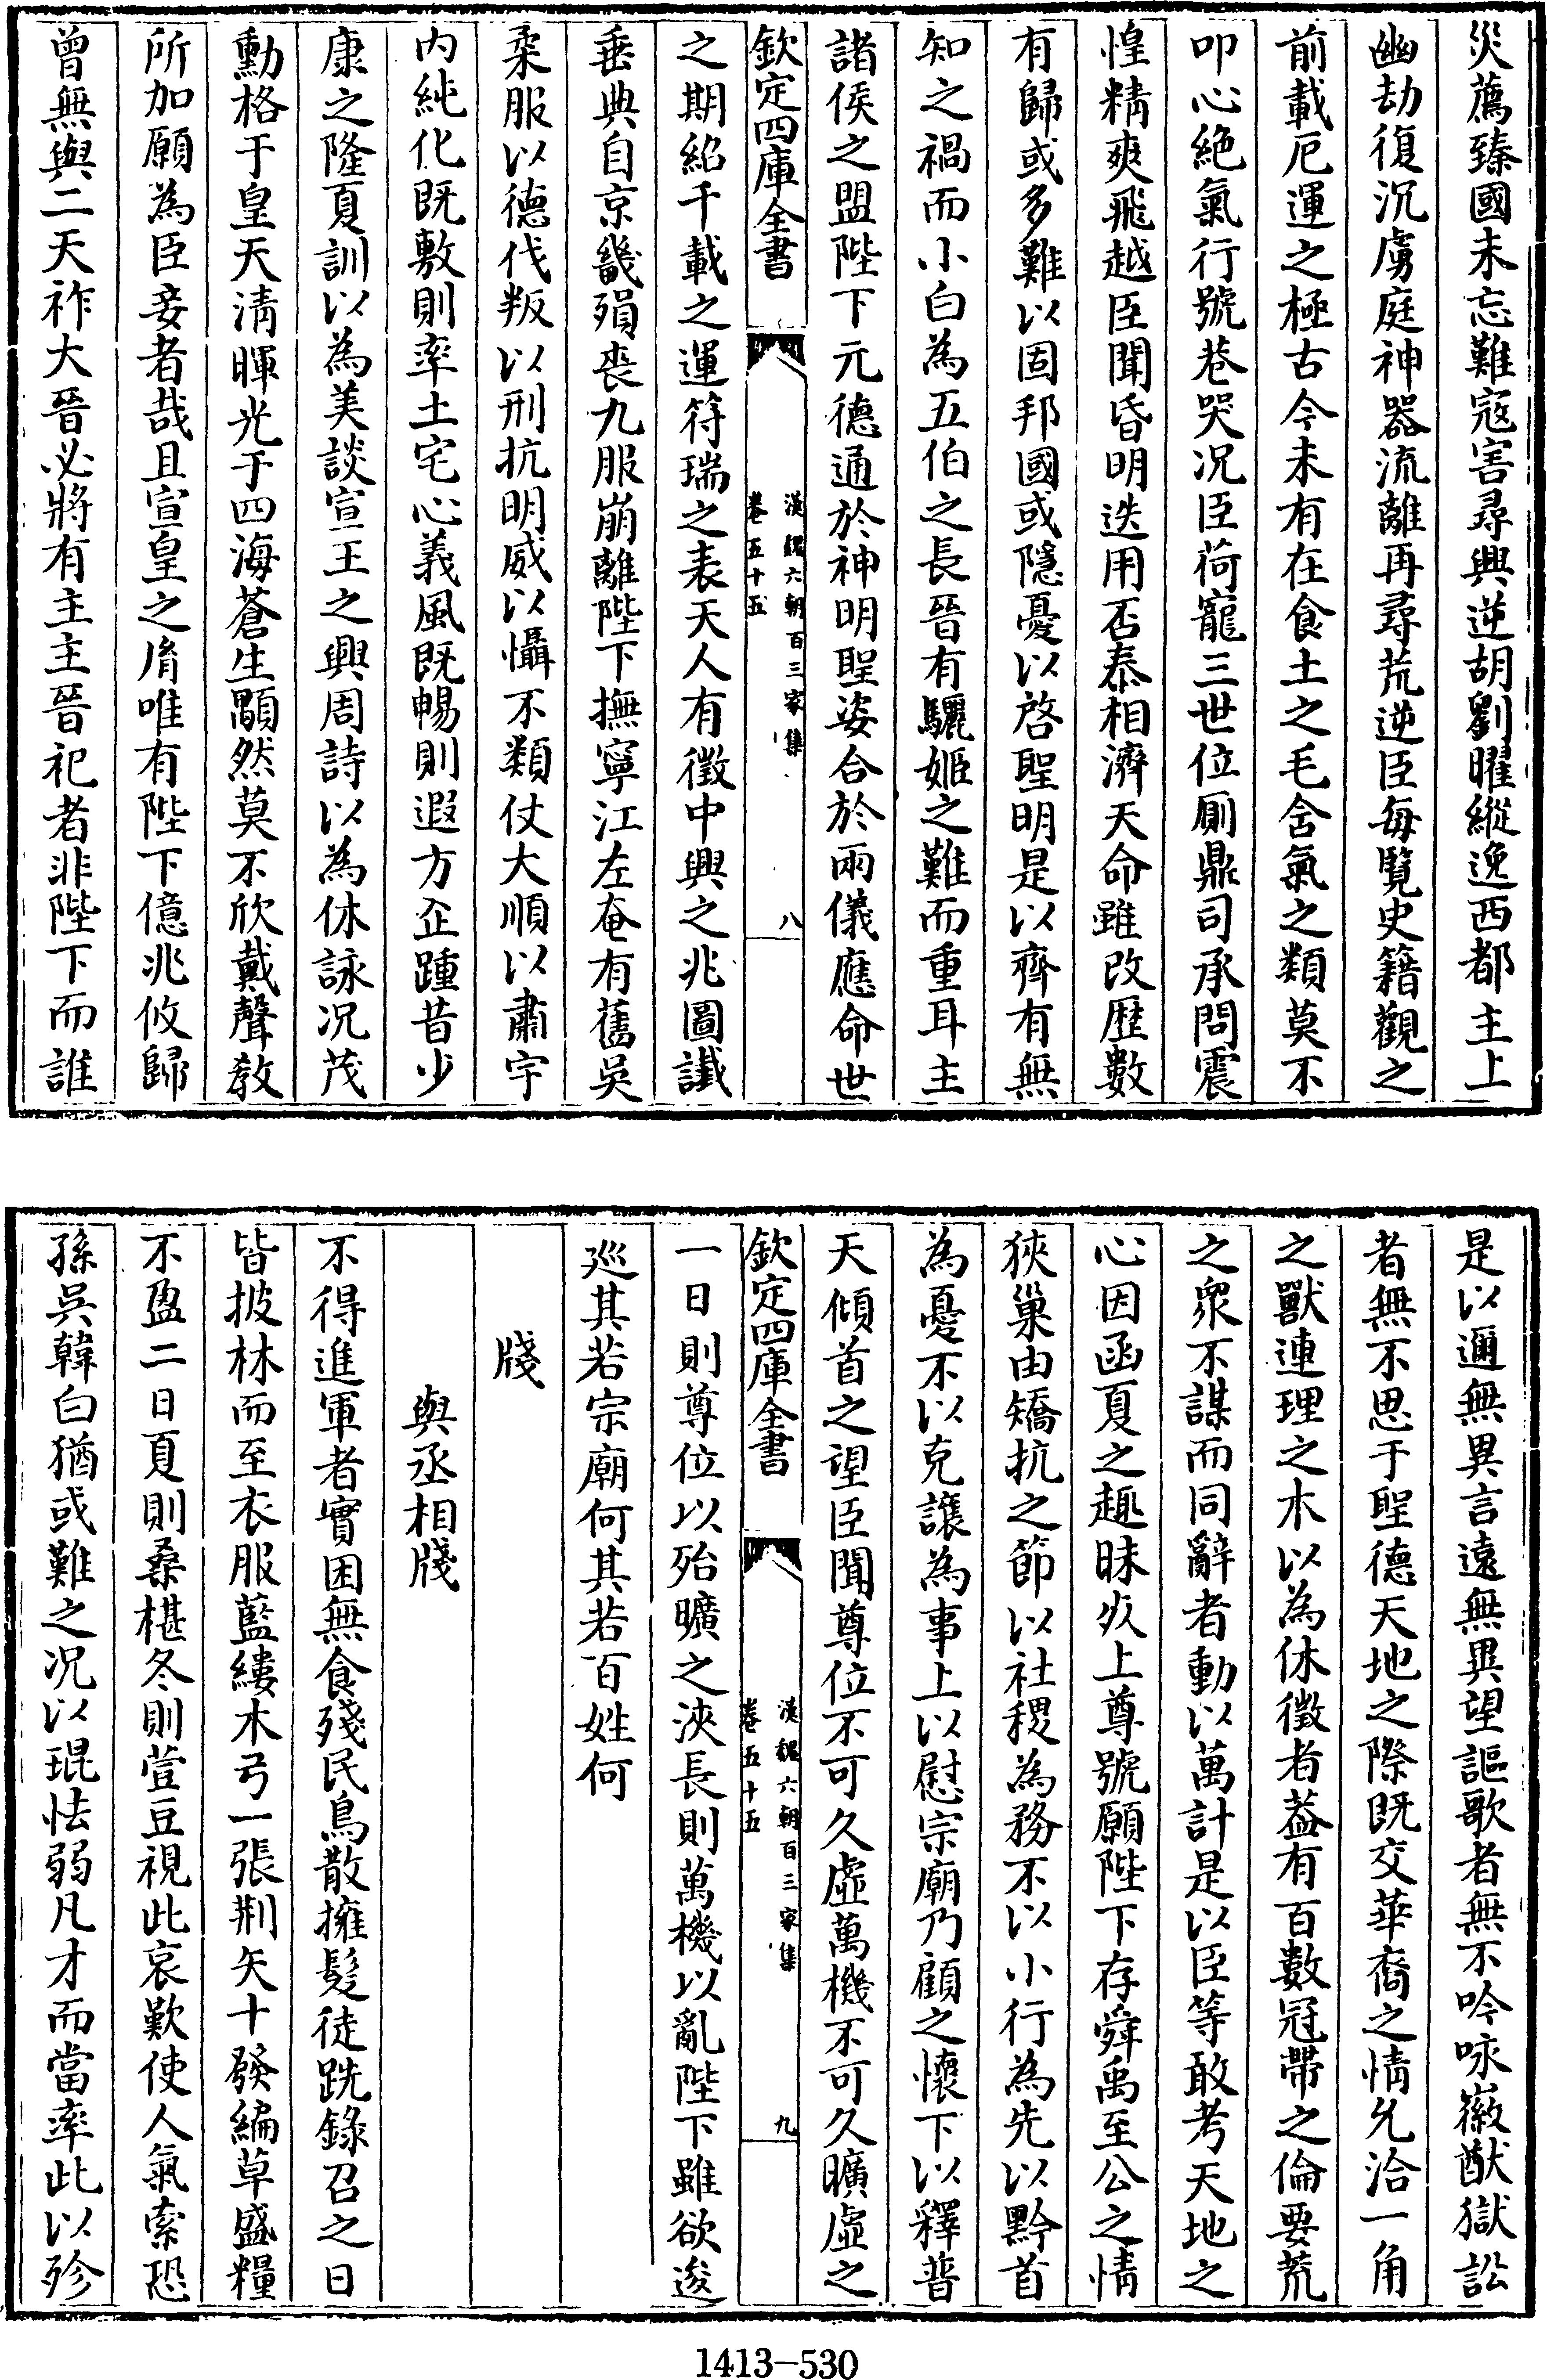 災薦臻國未忘難寇害尋興逆胡劉曜縱逸西都主上
幽劫復沉虜庭神器流離再尋荒逆臣每覽史籍觀之
前載厄運之極古今未有在食土之毛含氣之類莫不
叩心絶氣行號巷哭况臣荷寵三世位厠鼎司承問震
惶精爽飛越臣聞昏明迭用否泰相濟天命雖改歴數
有歸或多難以固邦國或隱憂以啓聖明是以齊有無
知之禍而小白為五伯之長晉有驪姬之難而重耳主
諸侯之盟陛下元德通於神明聖姿合於兩儀應命世
欽定四庫全書
漢魏六朝百三家集
卷五十五
八
之期紹千載之運符瑞之表天人有徵中興之兆圖讖
垂典自京畿殞喪九服崩離陛下撫寧江左奄有舊吳
柔服以德伐叛以刑抗明威以懾不類仗大順以肅宇
内純化既敷則率土宅心義風既暢則遐方企踵昔少
康之隆夏訓以為美談宣王之興周詩以為休詠况茂
勳格于皇天清暉光于四海蒼生顒然莫不欣戴聲教
所加願為臣妾者哉且宣皇之胤唯有陛下億兆攸歸
曾無與二天祚大晉必將有主主晉祀者非陛下而誰
是以邇無異言遠無異望謳歌者無不吟咏徽猷獄訟
者無不思于聖德天地之際既交華裔之情允洽一角
之獸連理之木以為休徵者葢有百數冠帶之倫要荒
之衆不謀而同辭者動以萬計是以臣等敢考天地之
心因函夏之趣昧死上尊號願陛下存舜禹至公之情
狹巢由矯抗之節以社稷為務不以小行為先以黔首
為憂不以克讓為事上以慰宗廟乃顧之懷下以釋普
天傾首之望臣聞尊位不可久虛萬機不可久曠虛之
欽定四庫全書
漢魏六朝百三家集
卷五十五
九
一日則尊位以殆曠之浹長則萬機以亂陛下雖欲逡
廵其若宗廟何其若百姓何
牋
與丞相牋
不得進軍者實困無食殘民鳥散擁髮徒跣錄召之日
皆披林而至衣服藍縷木弓一張荆矢十發編草盛糧
不盈二日夏則桑椹冬則䇺豆視此哀歎使人氣索恐
孫吳韓白猶或難之况以琨怯弱凡才而當率此以殄
1413-530